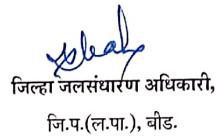 जिल्हा जलसंधारण अधिकारी,
जि.प.(ल.पा.), बीड.